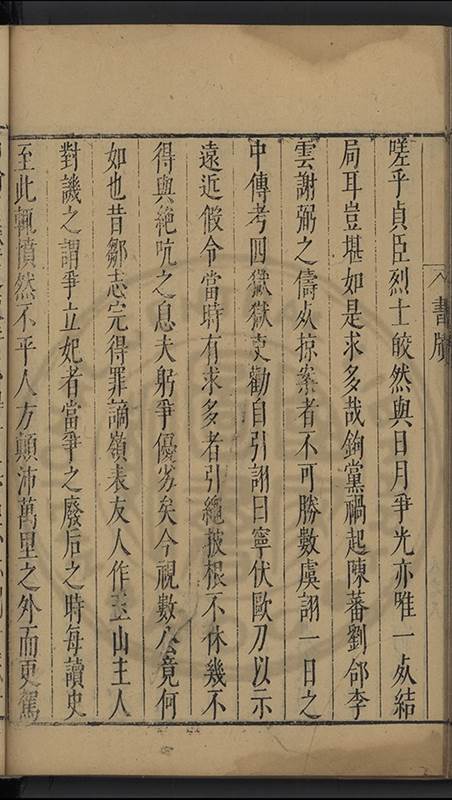 書牘
嗟乎貞臣烈士皎然與日月爭光亦唯一死結
局耳豈堪如是求多哉鉤黨禍起陳蕃劉郃李
雲謝弼之儔死掠案者不可勝數虞詡一日之
中傳考四獄獄吏勸自引詡曰寧伏歐刀以示
遠近假令當時有求多者引繩披根不休幾不
得與絶吭之息夫躬爭優劣矣今視數公竟何
如也昔鄒志完得罪謫嶺表友人作玉山主人
對譏之謂爭立妃者當爭之廢后之時每讀史
至此輒憤然不平人方顛沛萬里之外而更駕